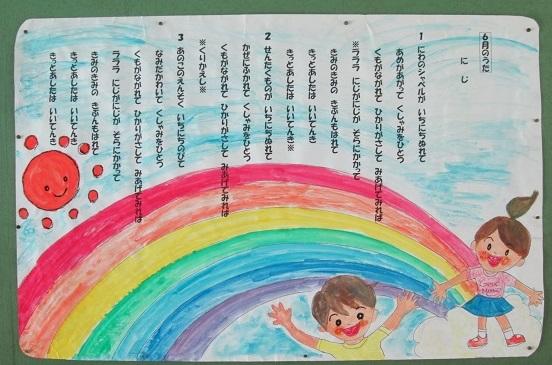 6月のうた
にじ
1 にわのシャベルが いちにちぬれて
あめがあがって くしゃみをひとつ
くもがながれて ひかりがさして みあげてみれば
※ラララ にじがにじが そらにかかって
きみのきみの きぶんもはれて
きっとあしたは いいてんき
きっとあしたは いいてんき※
2 せんたくものが いちにちぬれて
かぜにふかれて くしゃみをひとつ
くもがながれて ひかりがさして みあげてみれば
※くりかえし※
3 あのこのえんそく いちにちのびて
なみだかわいて くしゃみをひとつ
くもがながれて ひかりがさして みあげてみれば
ラララ にじがにじが そらにかかって
きみのきみの きぶんもはれて
きっとあしたは いいてんき
きっとあしたは いいてんき